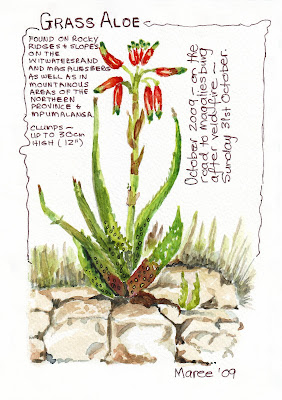 GRASS ALOE
FOUND ON ROCKY
RIDGES & SLOPES
ON THE
WITWATERSRAND
AND MAGALIESBERG
AS WELL AS IN
MOUNTAINOUS
AREAS OF THE
NORTHERN
PROVINCE &
MPUMALANGA.
CLUMPS -
UP TO 30cm
HIGH (12")
October 2009 - on the
road to Magaliesburg
after veld-fire -
Sunday 31st October.
Maree '09